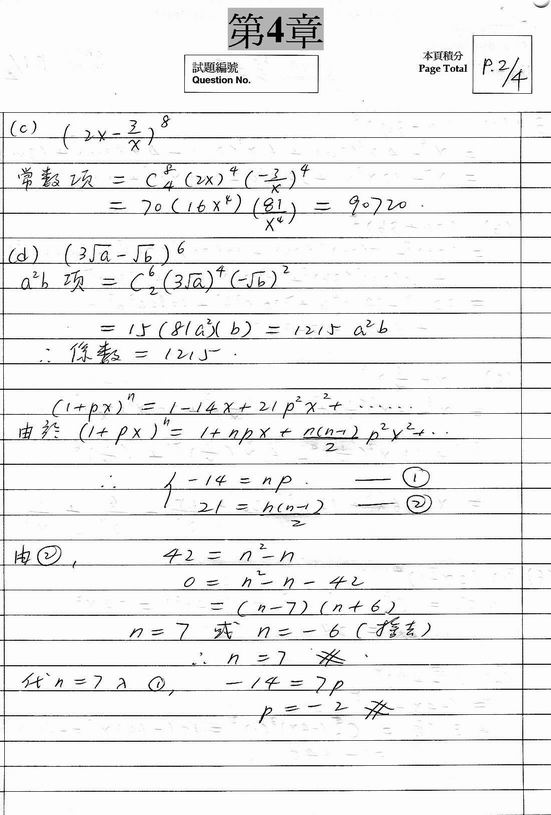 第4章
試題編號
Question No.
本頁積分
Page Total
P.2/4
(c) (2x - 3/x)^8
常數項 = C^8_4 (2x)^4 (-3/x)^4
= 70 (16x^4) (81/x^4) = 90720.
(d) (3√a - √b)^6
a²b 项 = C^6_2 (3√a)^4 (-√b)^2
= 15 (81a²)(b) = 1215 a²b
∴ 係數 = 1215.
(1+px)^n = 1 - 14x + 21p²x² + ......
由於 (1+px)^n = 1 + npx + n(n-1)/2 p²x² + ..
∴ { -14 = np. — ①
21 = n(n-1)/2 — ②
由②, 42 = n² - n
0 = n² - n - 42
= (n-7)(n+6)
n = 7 或 n = -6 (捨去)
∴ n = 7 #.
代 n = 7 入 ①, -14 = 7p
p = -2 #